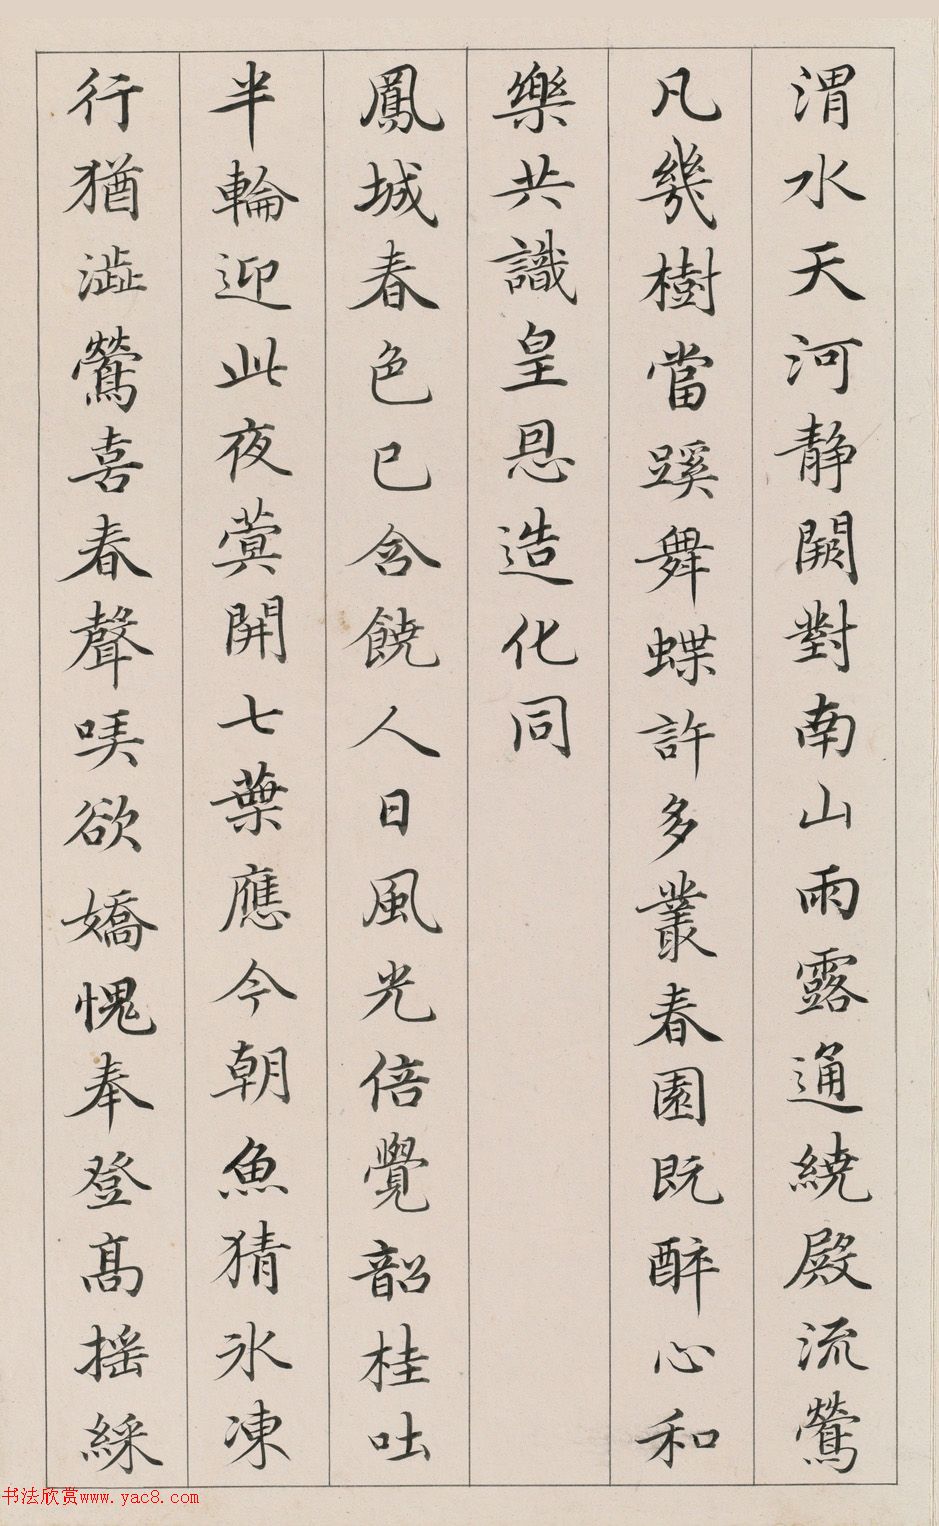 渭水天河静闕對南山雨露通繞殿流鶯
凡幾樹當蹊舞蝶許多叢春園既醉心和
樂共識皇恩造化同
鳳城春色已含饒人日風光倍覺韶桂吐
半輪迎此夜蓂開七葉應今朝魚猜氷凍
行猶澁鶯喜春聲𠵽欲嬌愧奉登髙摇綵
书法欣赏www.yac8.com